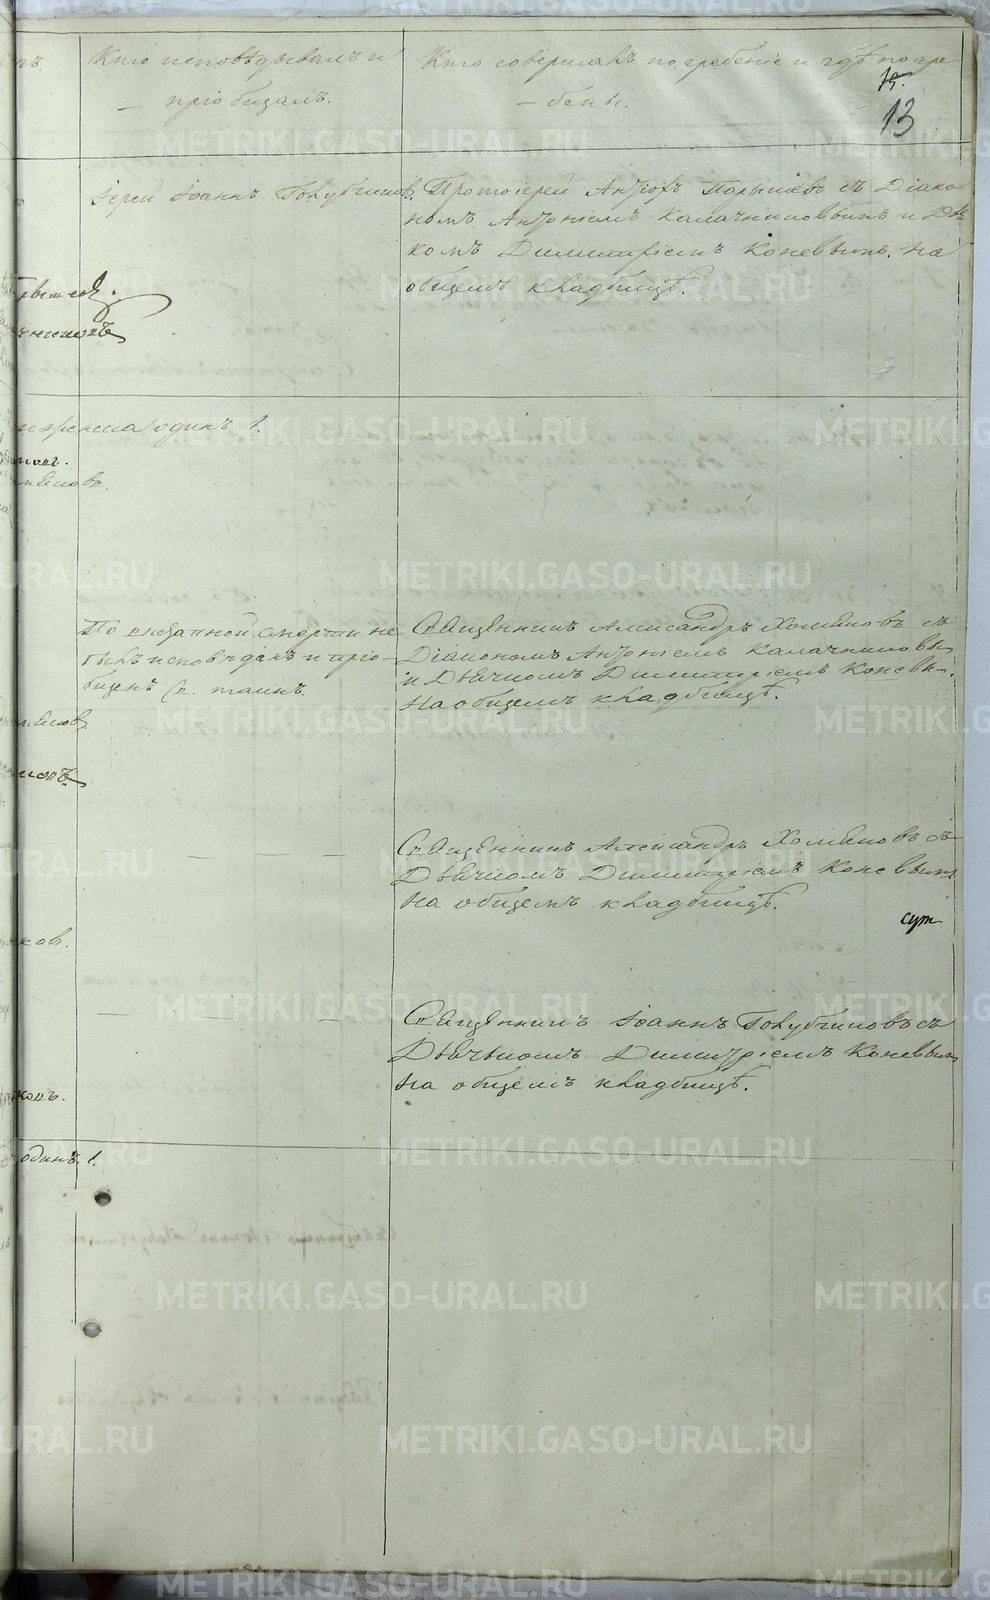 Кто исповѣдывалъ и
пріобщалъ.
Кто совершалъ погребеніе и гдѣ погре-
бены.
13
Іерей Іоаннъ Голубчиковъ.
Протоіерей Антіохъ с Діако-
номъ Антоніемъ Калачниковымъ и Дья-
комъ Димитріемъ Коневымъ. На
общемъ кладбищѣ.
одинъ 1.
По внезапной смерти не
былъ исповѣданъ и прі-
общенъ Св. таинъ.
Священникъ Александръ Хомяковъ съ
Діакономъ Антоніемъ Калачниковы-
и Дьячкомъ Димитріемъ Конева-.
На общемъ кладбищѣ.
Священникъ Александръ Хомяковъ съ
Дьячкомъ Димитріемъ Коневымъ
на общемъ кладбищѣ.
сут
Священникъ Іоаннъ Голубчиковъ съ
Дьячкомъ Димитріемъ Коневымъ
на общемъ кладбищѣ.
одинъ. 1.
METRIKI.GASO-URAL.RU